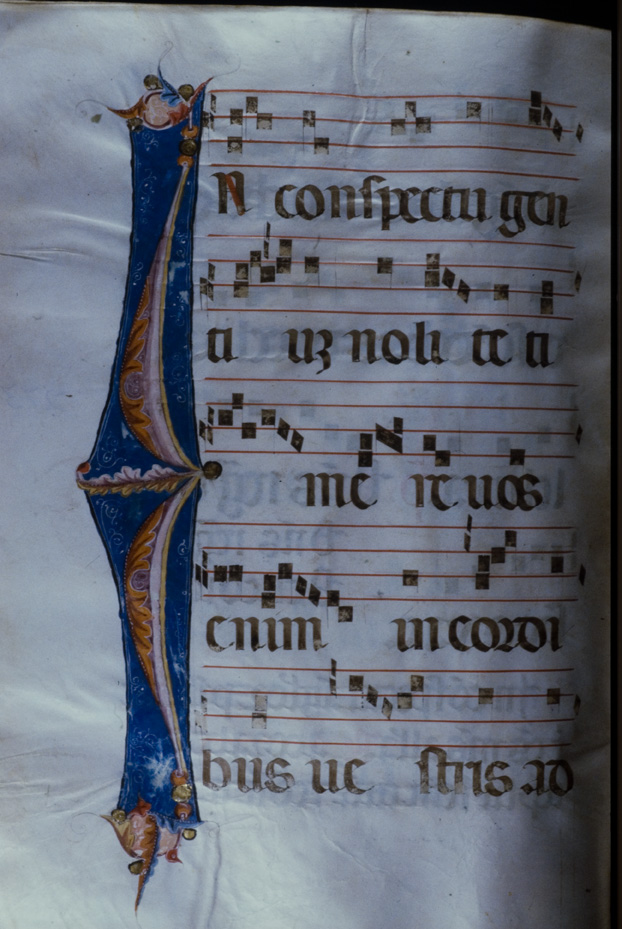 IN conspectu gen
ti uz noli te ti
me re uos
enim in cordi
bus ue stris ad